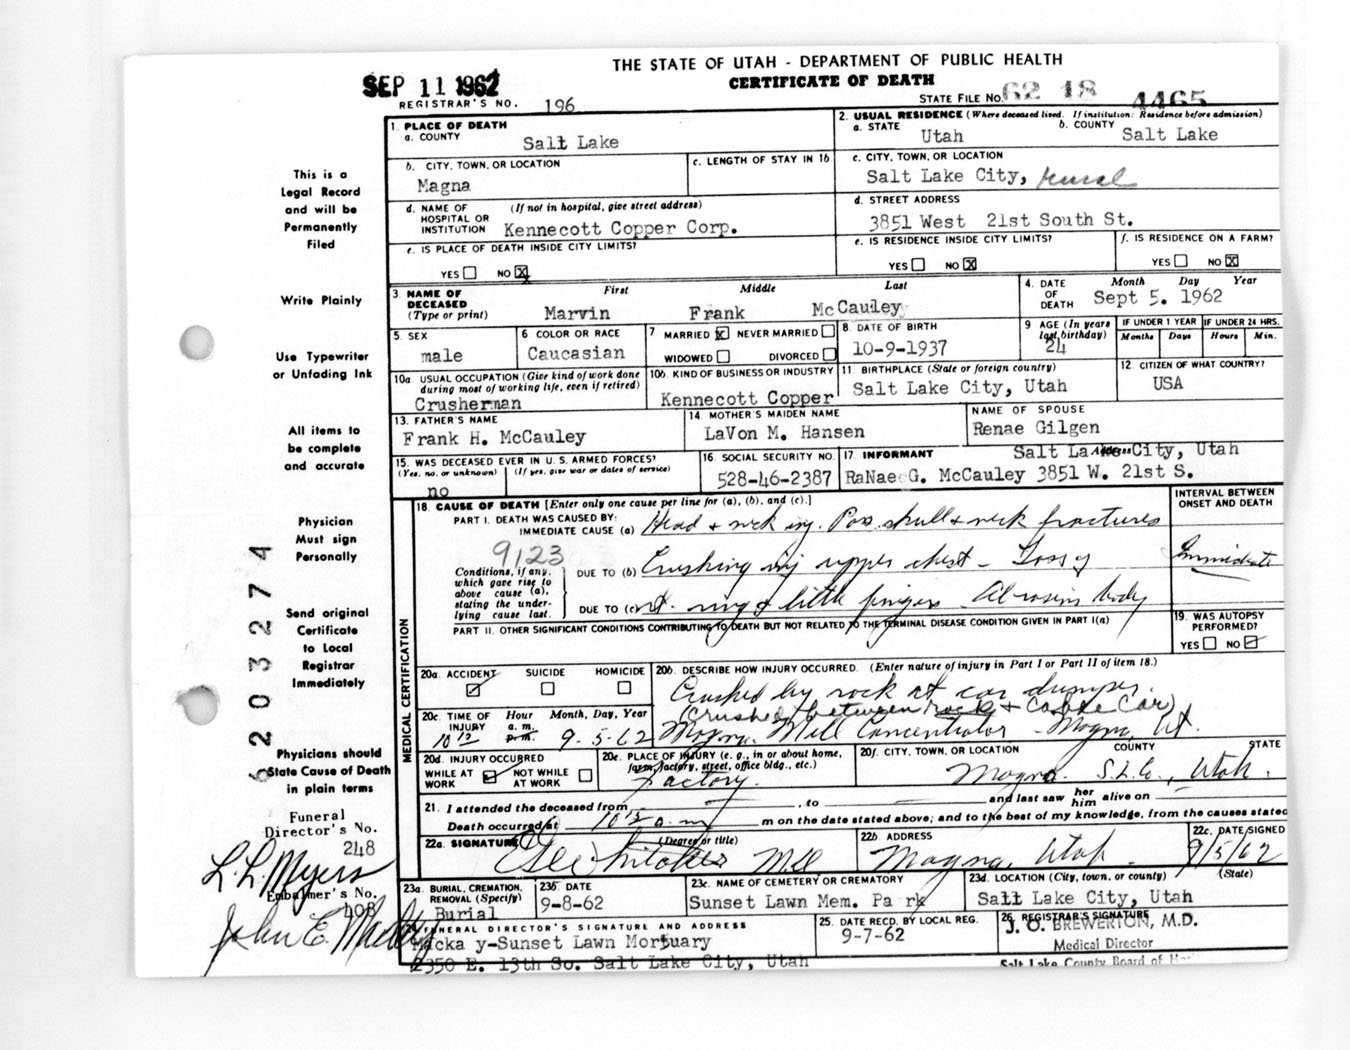 THE STATE OF UTAH - DEPARTMENT OF PUBLIC HEALTH
SEP 11 1962
CERTIFICATE OF DEATH
REGISTRAR'S NO. 196
STATE FILE NO. 62 18 4465
1. PLACE OF DEATH
a. COUNTY Salt Lake
2. USUAL RESIDENCE (Where deceased lived. If institution: Residence before admission)
a. STATE Utah b. COUNTY Salt Lake
b. CITY, TOWN, OR LOCATION Magna
c. LENGTH OF STAY IN 1b
c. CITY, TOWN, OR LOCATION
Salt Lake City, rural
d. NAME OF HOSPITAL OR INSTITUTION (If not in hospital, give street address)
Kennecott Copper Corp.
d. STREET ADDRESS
3851 West 21st South St.
e. IS PLACE OF DEATH INSIDE CITY LIMITS?
YES NO X
e. IS RESIDENCE INSIDE CITY LIMITS?
YES NO X
f. IS RESIDENCE ON A FARM?
YES NO X
3. NAME OF DECEASED (Type or print)
First Middle Last
Marvin Frank McCauley
4. DATE OF DEATH Month Day Year
Sept 5. 1962
5. SEX male
6. COLOR OR RACE Caucasian
7 MARRIED X NEVER MARRIED
WIDOWED DIVORCED
8. DATE OF BIRTH 10-9-1937
9 AGE (In years last birthday) 24
IF UNDER 1 YEAR Months Days
IF UNDER 24 HRS. Hours Min.
10a. USUAL OCCUPATION (Give kind of work done during most of working life, even if retired)
Crusherman
10b. KIND OF BUSINESS OR INDUSTRY
Kennecott Copper
11. BIRTHPLACE (State or foreign country)
Salt Lake City, Utah
12. CITIZEN OF WHAT COUNTRY?
USA
13. FATHER'S NAME
Frank H. McCauley
14. MOTHER'S MAIDEN NAME
LaVon M. Hansen
NAME OF SPOUSE
Renae Gilgen
15. WAS DECEASED EVER IN U. S. ARMED FORCES?
(Yes, no, or unknown) (If yes, give war or dates of service)
no
16. SOCIAL SECURITY NO.
528-46-2387
17. INFORMANT Address
Salt Lake City, Utah
RaNae G. McCauley 3851 W. 21st S.
MEDICAL CERTIFICATION
18. CAUSE OF DEATH [Enter only one cause per line for (a), (b), and (c).]
INTERVAL BETWEEN ONSET AND DEATH
PART I. DEATH WAS CAUSED BY:
IMMEDIATE CAUSE (a) Head & neck inj. Poss. skull & neck fractures
9123
Conditions, if any, which gave rise to above cause (a), stating the underlying cause last.
DUE TO (b) Crushing inj upper chest - Loss of
Immediate
DUE TO (c) rt. ring & little fingers Abrasion body
PART II. OTHER SIGNIFICANT CONDITIONS CONTRIBUTING TO DEATH BUT NOT RELATED TO THE TERMINAL DISEASE CONDITION GIVEN IN PART I(a)
19. WAS AUTOPSY PERFORMED?
YES NO ✓
20a. ACCIDENT ✓ SUICIDE HOMICIDE
20b. DESCRIBE HOW INJURY OCCURRED. (Enter nature of injury in Part I or Part II of item 18.)
Crushed by rock at car dumper.
(crushed between rock & cable car)
Magna Mill Concentrator - Magna, Ut.
20c. TIME OF INJURY Hour a. m. p. m. Month, Day, Year
10 15 9-5-62
20d. INJURY OCCURRED
WHILE AT WORK ✓ NOT WHILE AT WORK
20e. PLACE OF INJURY (e. g., in or about home, farm, factory, street, office bldg., etc.)
Factory.
20f. CITY, TOWN, OR LOCATION COUNTY STATE
Magna. S.L.Co., Utah.
21. I attended the deceased from , to and last saw her him alive on
Death occurred at 10 15 a.m m on the date stated above; and to the best of my knowledge, from the causes stated
22a. SIGNATURE (Degree or title)
M.D.
22b ADDRESS
Magna, Utah.
22c. DATE SIGNED
9/5/62
23a. BURIAL, CREMATION, REMOVAL (Specify)
Burial
23b. DATE
9-8-62
23c. NAME OF CEMETERY OR CREMATORY
Sunset Lawn Mem. Park
23d. LOCATION (City, town, or county) (State)
Salt Lake City, Utah
24. FUNERAL DIRECTOR'S SIGNATURE AND ADDRESS
Macka y-Sunset Lawn Mortuary
2350 E. 13th So. Salt Lake City, Utah
25. DATE RECD. BY LOCAL REG.
9-7-62
26. REGISTRAR'S SIGNATURE
J. O. BREWERTON, M.D.
Medical Director
Salt Lake County Board of
This is a
Legal Record
and will be
Permanently
Filed
Write Plainly
Use Typewriter
or Unfading Ink
All items to
be complete
and accurate
Physician
Must sign
Personally
Send original
Certificate
to Local
Registrar
Immediately
Physicians should
State Cause of Death
in plain terms
Funeral
Director's No.
248
L. L. Myers
Embalmer's No.
408
John E.
6203274